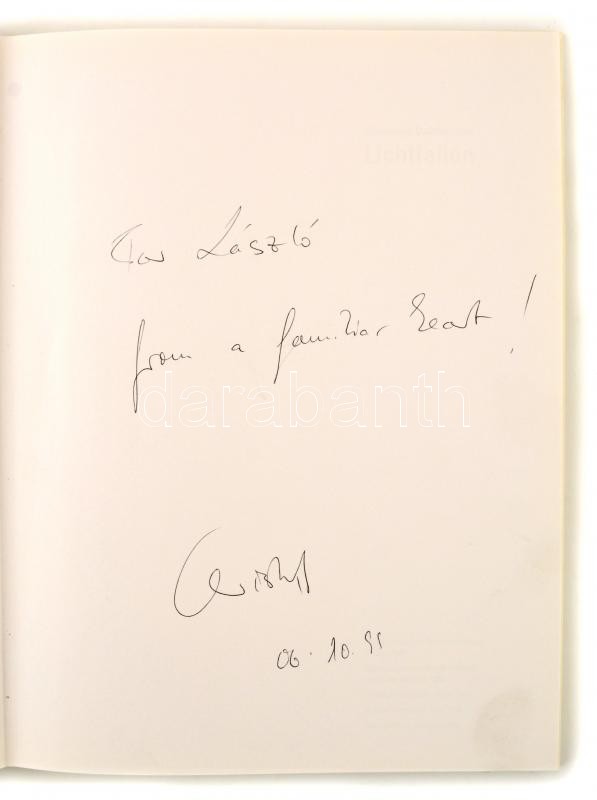 For László
from a familiar heart!
darabanth
Christoph
06.10.99
Lichtfallen